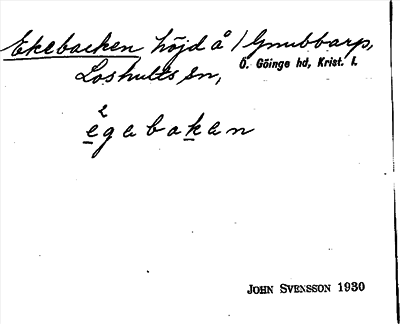 Ekebacken höjd å 1 Gnubbarp,
Loshults sn, Ö. Göinge hd, Krist. l.
2
egabakan
JOHN SVENSSON 1930